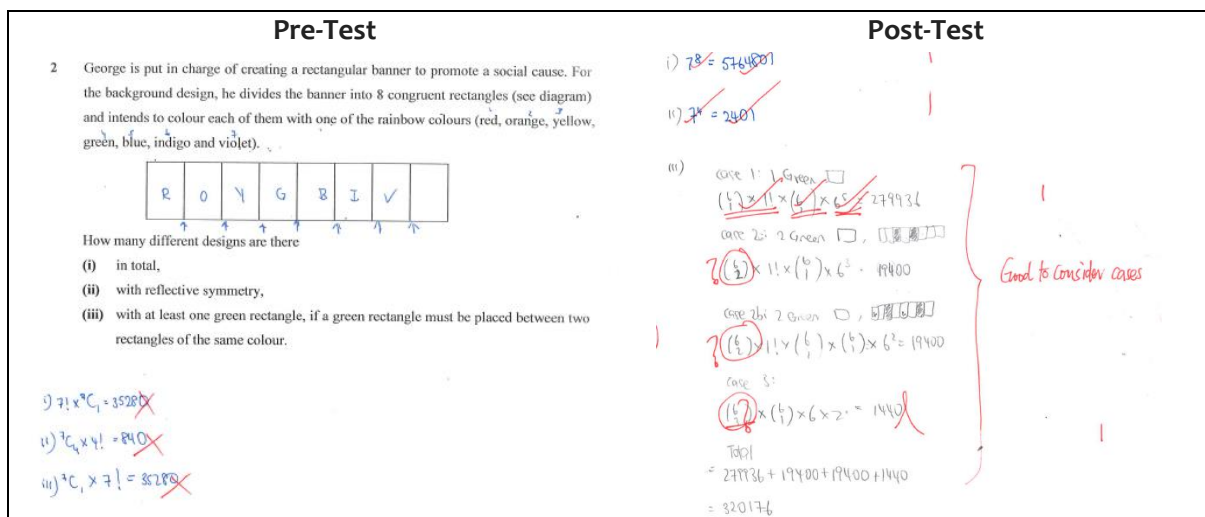 Pre-Test
2 George is put in charge of creating a rectangular banner to promote a social cause. For
the background design, he divides the banner into 8 congruent rectangles (see diagram)
and intends to colour each of them with one of the rainbow colours (red, orange, yellow,
green, blue, indigo and violet).
1 2 3
4 5 6 7
R O Y G B I V
How many different designs are there
(i) in total,
(ii) with reflective symmetry,
(iii) with at least one green rectangle, if a green rectangle must be placed between two
rectangles of the same colour.
i) 7! x ⁸C₁ = 35280
ii) ⁷C₄ x 4! = 840
iii) ⁷C₁ x 7! = 35280
Post-Test
i) 7⁸ = 5764801 1
ii) 7⁴ = 2401 1
iii)
case 1: 1 Green
(6 1) x 1! x (6 1) x 6⁵ = 279936
1
case 2a: 2 Green
? (6 2) x 1! x (6 1) x 6³ = 19400
Good to consider cases
case 2b: 2 Green
1 ? (6 2) x 1! x (6 1) x (6 1) x 6² = 19400
case 3:
x (6 1) x 6 x 2 = 1440
1
Total
= 279936 + 19400 + 19400 + 1440
= 320176